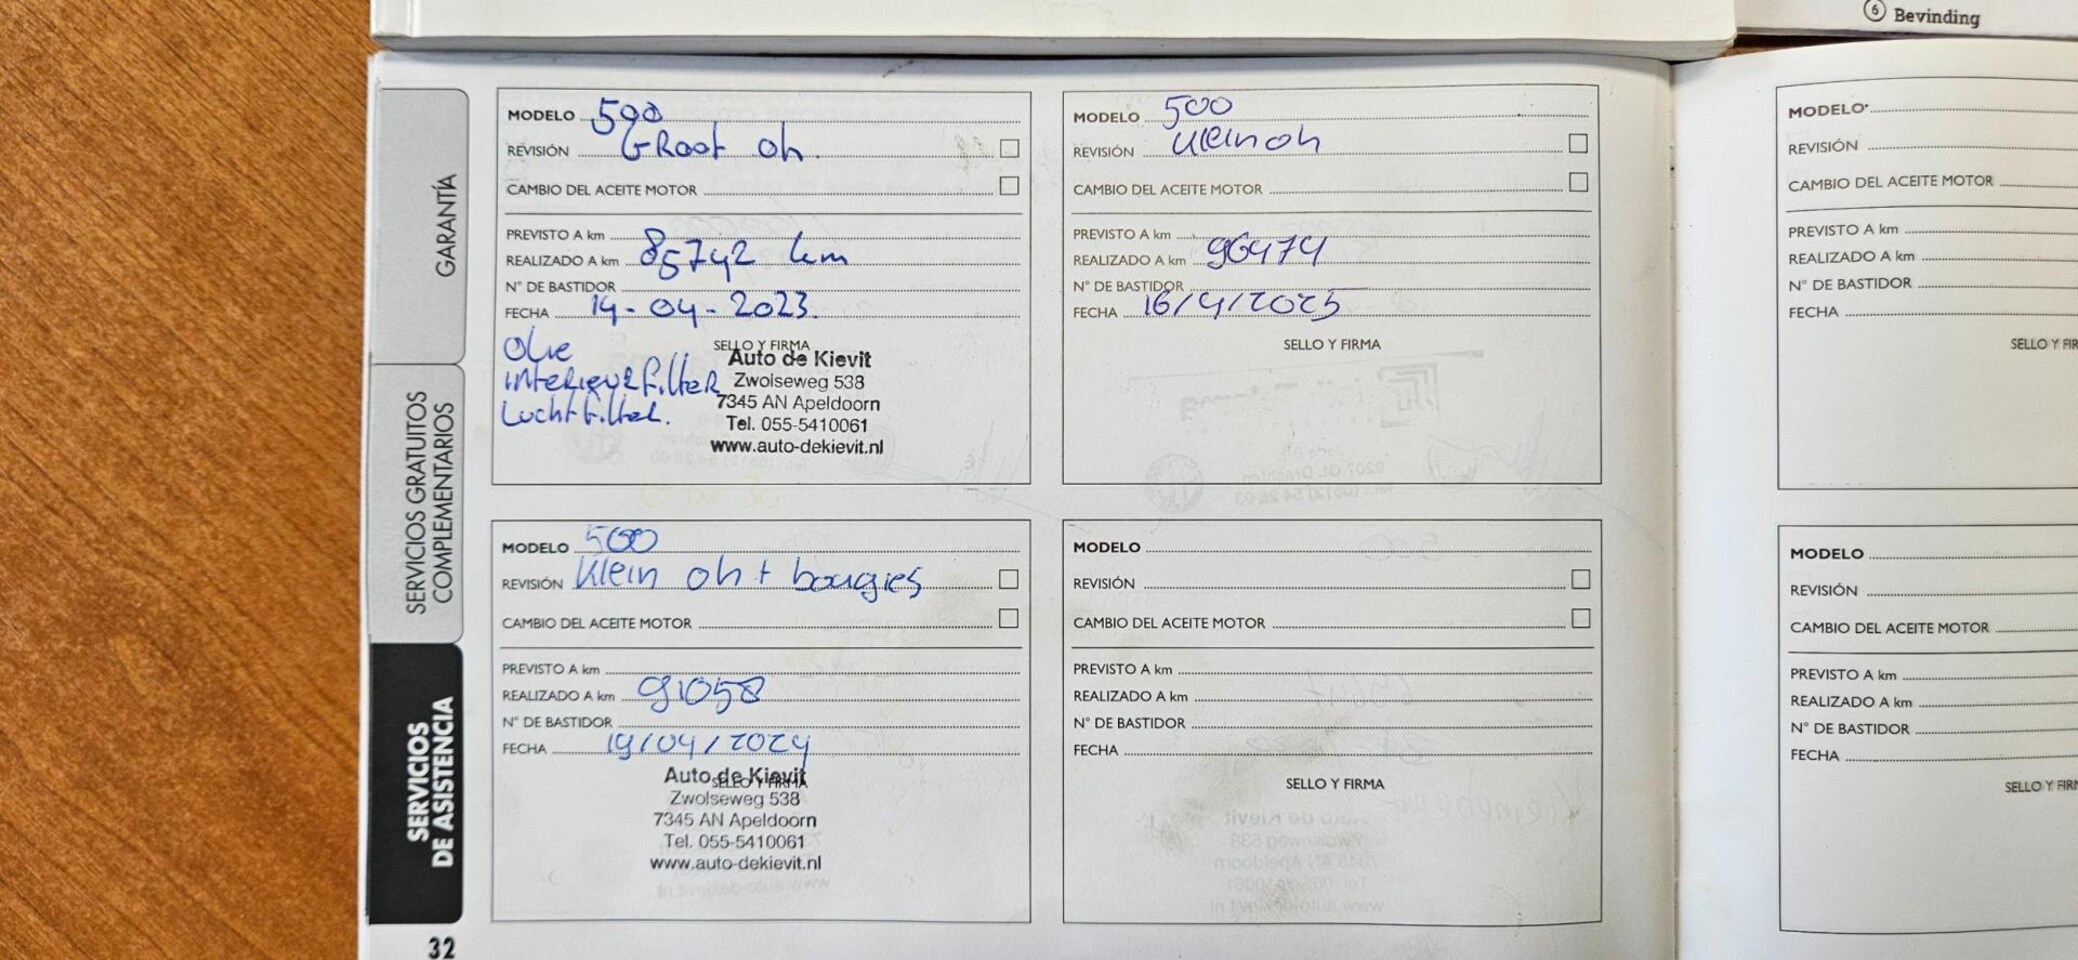 6 Bevinding
GARANTÍA
SERVICIOS GRATUITOS
COMPLEMENTARIOS
SERVICIOS
DE ASISTENCIA
32
MODELO 500
REVISIÓN GRoot oh.
CAMBIO DEL ACEITE MOTOR
PREVISTO A km
REALIZADO A km 85742 km
N° DE BASTIDOR
FECHA 14-04-2023.
Olie
interieurfilter
Luchtfilter.
SELLO Y FIRMA
Auto de Kievit
Zwolseweg 538
7345 AN Apeldoorn
Tel. 055-5410061
www.auto-dekievit.nl
MODELO 500
REVISIÓN Klein oh + bougies
CAMBIO DEL ACEITE MOTOR
PREVISTO A km
REALIZADO A km 91058
N° DE BASTIDOR
FECHA 19/04/2024
SELLO Y FIRMA
Auto de Kievit
Zwolseweg 538
7345 AN Apeldoorn
Tel. 055-5410061
www.auto-dekievit.nl
MODELO 500
REVISIÓN klein oh
CAMBIO DEL ACEITE MOTOR
PREVISTO A km
REALIZADO A km 96474
N° DE BASTIDOR
FECHA 16/4/2025
SELLO Y FIRMA
MODELO
REVISIÓN
CAMBIO DEL ACEITE MOTOR
PREVISTO A km
REALIZADO A km
N° DE BASTIDOR
FECHA
SELLO Y FIRMA
MODELO
REVISIÓN
CAMBIO DEL ACEITE MOTOR
PREVISTO A km
REALIZADO A km
N° DE BASTIDOR
FECHA
SELLO Y FIR
MODELO
REVISIÓN
CAMBIO DEL ACEITE MOTOR
PREVISTO A km
REALIZADO A km
N° DE BASTIDOR
FECHA
SELLO Y FIR